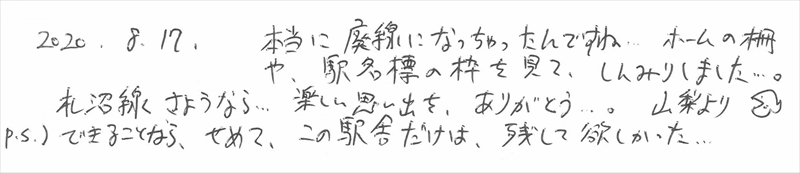 2020. 8. 17. 本当に廃線になっちゃったんですね… ホームの柵
や、駅名標の枠を見て、しんみりしました…。
札沼線く さようなら… 楽しい思い出を、ありがとう…。 山梨より
p.s.) できることなら、せめて、この駅舎だけは、残して欲しかった…